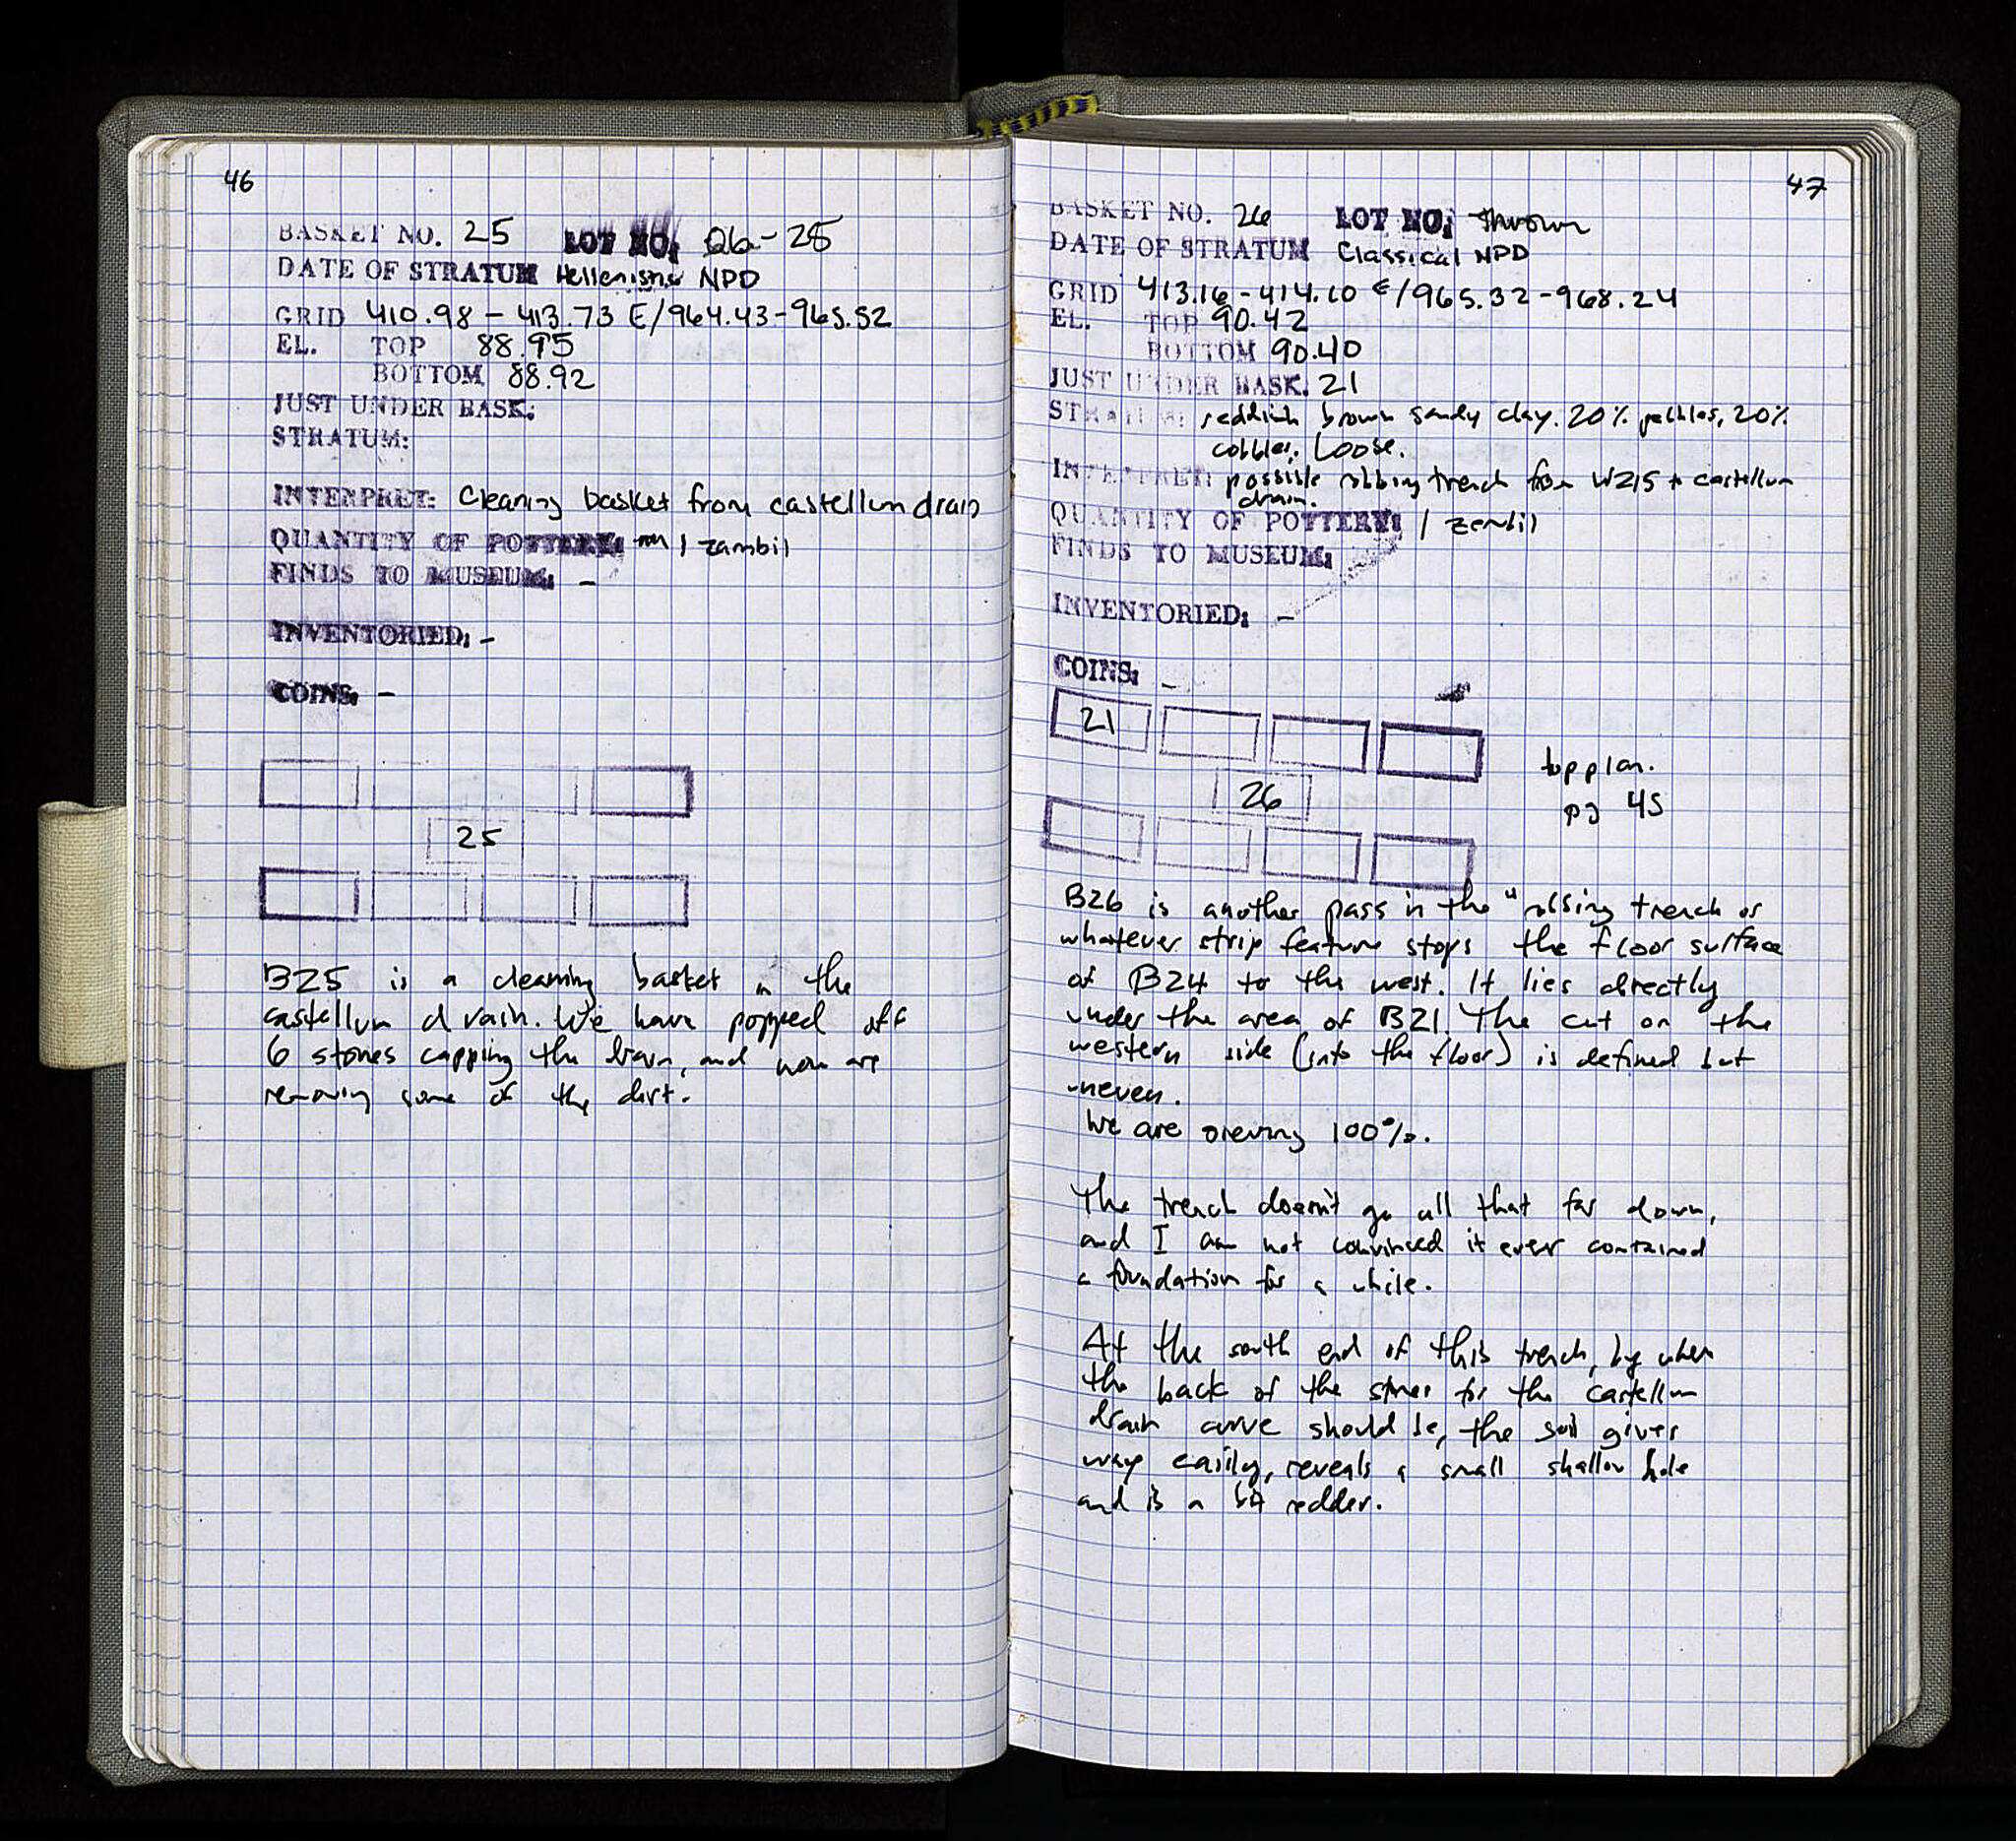 46
BASKET NO. 25 LOT NO: 06-25
DATE OF STRATUM Hellenistic NPD
GRID 410.98 - 413.73 E/964.43-965.52
EL. TOP 88.95
BOTTOM 88.92
JUST UNDER BASK:
STRATUM:
INTERPRET: Cleaning basket from castellum drain
QUANTITY OF POTTERY: 1 zambil
FINDS TO MUSEUM: -
INVENTORIED: -
COINS: -
25
B25 is a cleaning basket in the
castellum drain. We have popped off
6 stones capping the drain, and now are
removing some of the dirt.
47
BASKET NO. 26 LOT NO: thrown
DATE OF STRATUM Classical NPD
GRID 413.16-414.10 E/965.32-968.24
EL. TOP 90.42
BOTTOM 90.40
JUST UNDER BASK. 21
STRATUM: reddish brown sandy clay. 20% pebbles, 20%
cobbles. Loose.
INTERPRET: possible robbing trench from W215 + castellum
drain.
QUANTITY OF POTTERY: 1 zembil
FINDS TO MUSEUM:
INVENTORIED: -
COINS: -
21
26
top plan.
pg 45
B26 is another pass in the "robbing trench or
whatever strip feature stops the floor surface
of B24 to the west. It lies directly
under the area of B21. The cut on the
western side (into the floor) is defined but
uneven.
We are sieving 100%.
The trench doesn't go all that far down,
and I am not convinced it ever contained
a foundation for a while.
At the south end of this trench, by when
the back of the stones for the castellum
drain curve should be, the soil gives
way easily, reveals a small shallow hole
and is a bit redder.